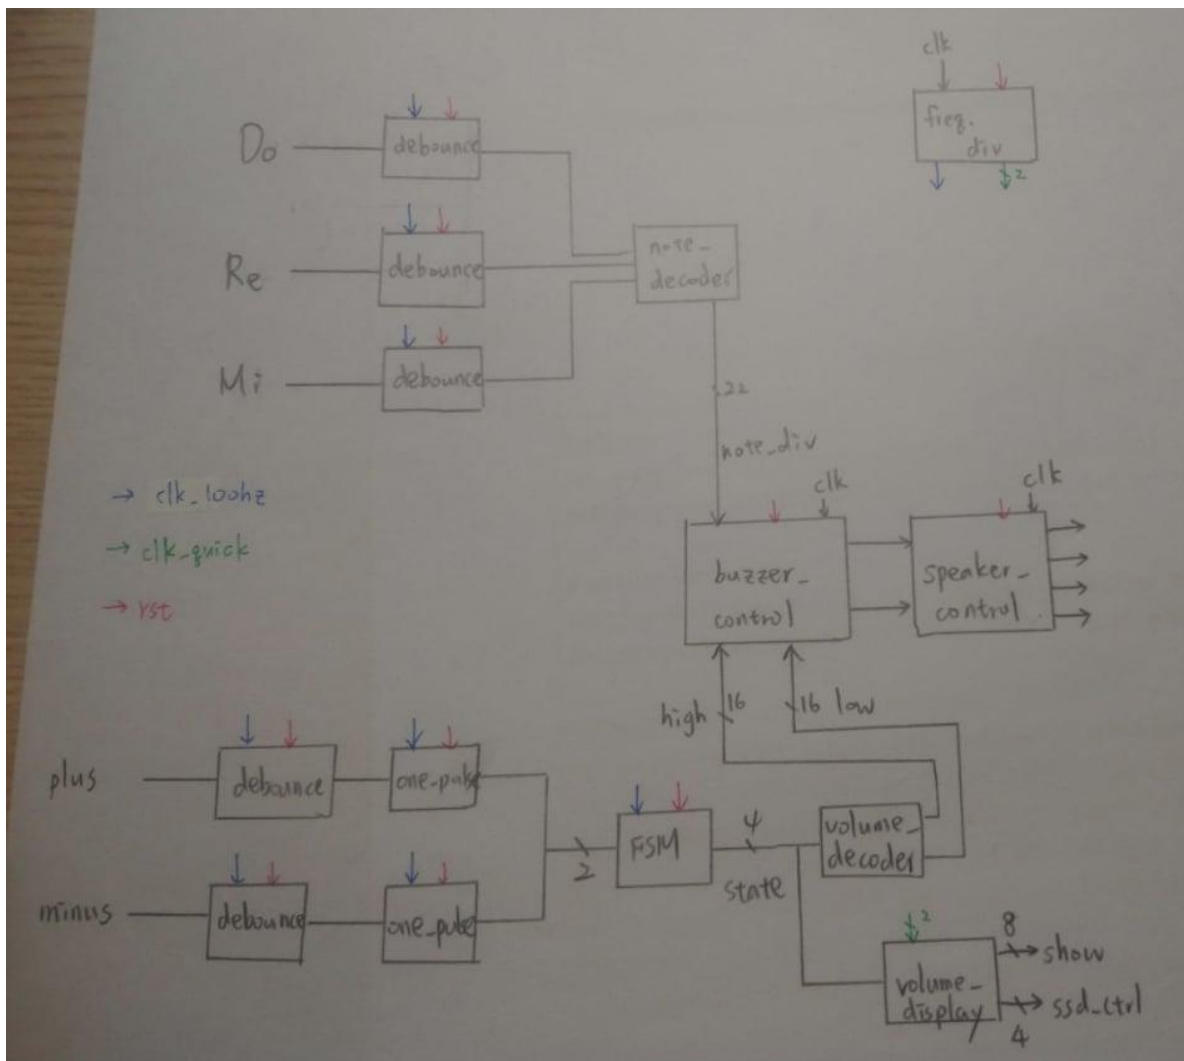 clk
freq.
div
2
Do
debounce
Re
debounce
note_
decoder
Mi
debounce
22
note_div
clk
clk
→ clk_100hz
→ clk_quick
→ rst
buzzer_
control
speaker_
control
high
16
16 low
plus
debounce
one_pulse
minus
debounce
one_pulse
2
FSM
4
state
volume_
decoder
2
volume_
display
8
show
ssd_ctrl
4